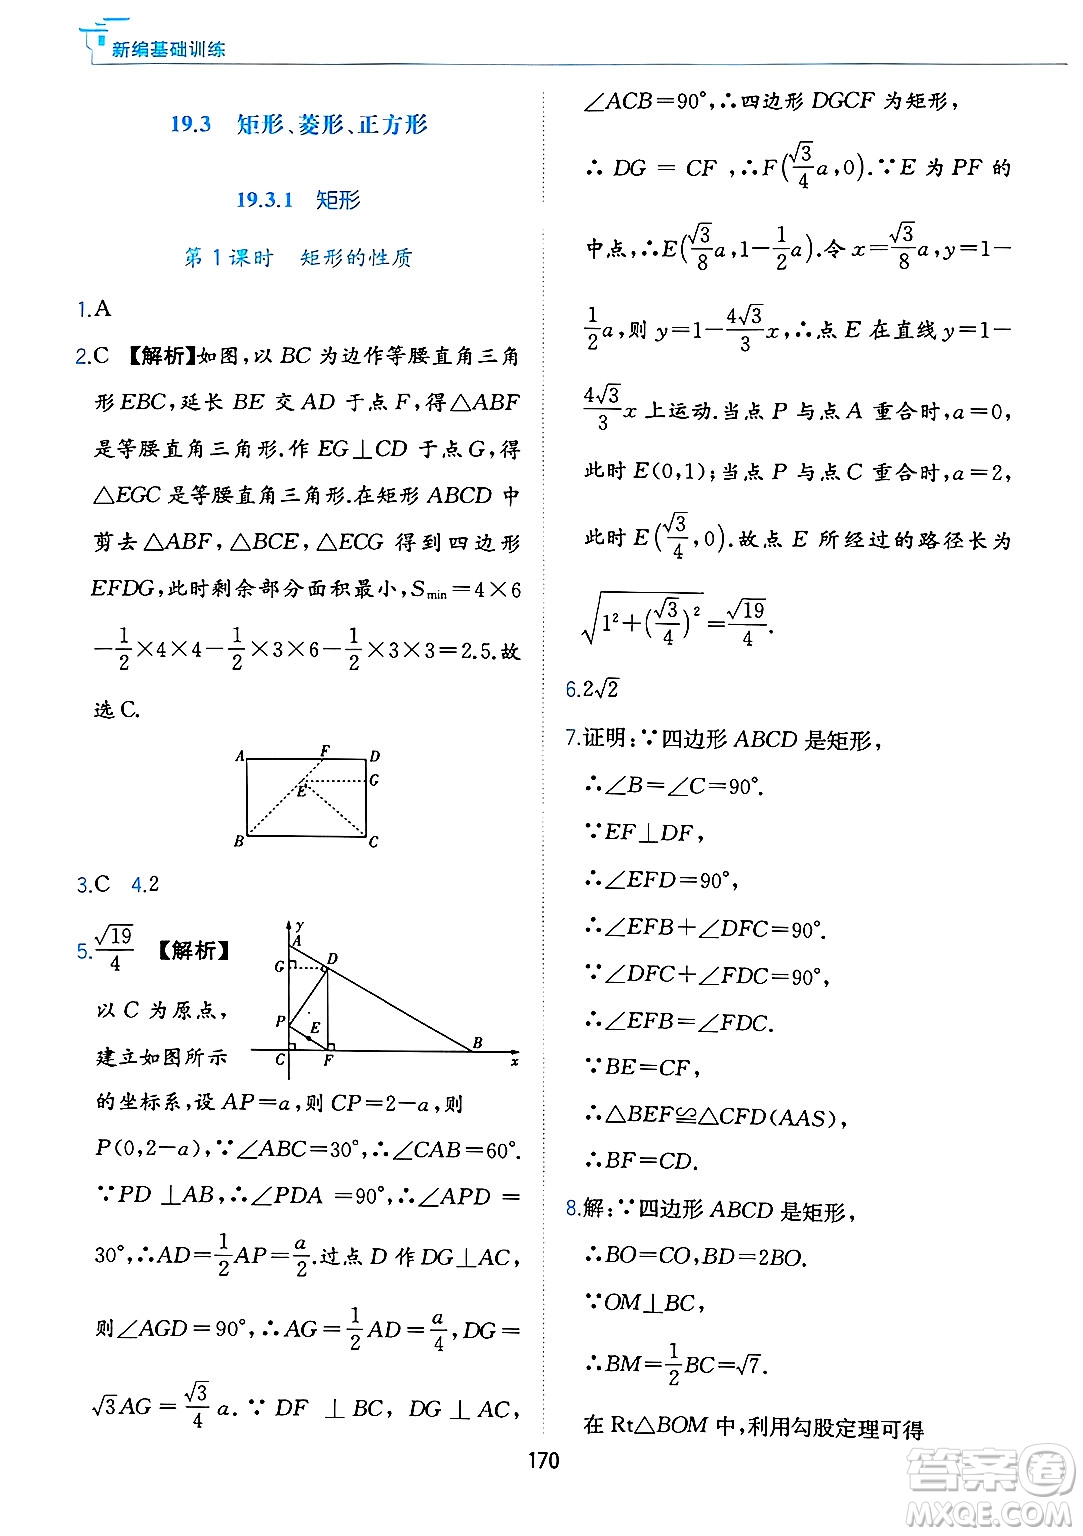 新编基础训练
19.3 矩形、菱形、正方形
19.3.1 矩形
第1课时 矩形的性质
1.A
2.C 【解析】如图,以BC为边作等腰直角三角
形EBC,延长BE交AD于点F,得△ABF
是等腰直角三角形.作EG⊥CD于点G,得
△EGC是等腰直角三角形.在矩形ABCD中
剪去△ABF,△BCE,△ECG得到四边形
EFDG,此时剩余部分面积最小,S_min=4×6
-1/2×4×4-1/2×3×6-1/2×3×3=2.5.故
选C.
A F D
E G
B C
3.C 4.2
5.√19/4 【解析】
以C为原点,
建立如图所示
y
A
G D
P E
C F B x
的坐标系,设AP=a,则CP=2-a,则
P(0,2-a),∵∠ABC=30°,∴∠CAB=60°.
∵PD⊥AB,∴∠PDA=90°,∴∠APD=
30°,∴AD=1/2AP=a/2.过点D作DG⊥AC,
则∠AGD=90°,∴AG=1/2AD=a/4,DG=
√3AG=√3/4a.∵DF⊥BC,DG⊥AC,
∠ACB=90°,∴四边形DGCF为矩形,
∴DG=CF,∴F(√3/4a,0).∵E为PF的
中点,∴E(√3/8a,1-1/2a).令x=√3/8a,y=1-
1/2a,则y=1-4√3/3x,∴点E在直线y=1-
4√3/3x上运动.当点P与点A重合时,a=0,
此时E(0,1);当点P与点C重合时,a=2,
此时E(√3/4,0).故点E所经过的路径长为
√(1²+(√3/4)²)=√19/4.
6.2√2
7.证明:∵四边形ABCD是矩形,
∴∠B=∠C=90°.
∵EF⊥DF,
∴∠EFD=90°,
∴∠EFB+∠DFC=90°.
∵∠DFC+∠FDC=90°,
∴∠EFB=∠FDC.
∵BE=CF,
∴△BEF≌△CFD(AAS),
∴BF=CD.
8.解:∵四边形ABCD是矩形,
∴BO=CO,BD=2BO.
∵OM⊥BC,
∴BM=1/2BC=√7.
在Rt△BOM中,利用勾股定理可得
170
答案圈
MXQE.COM